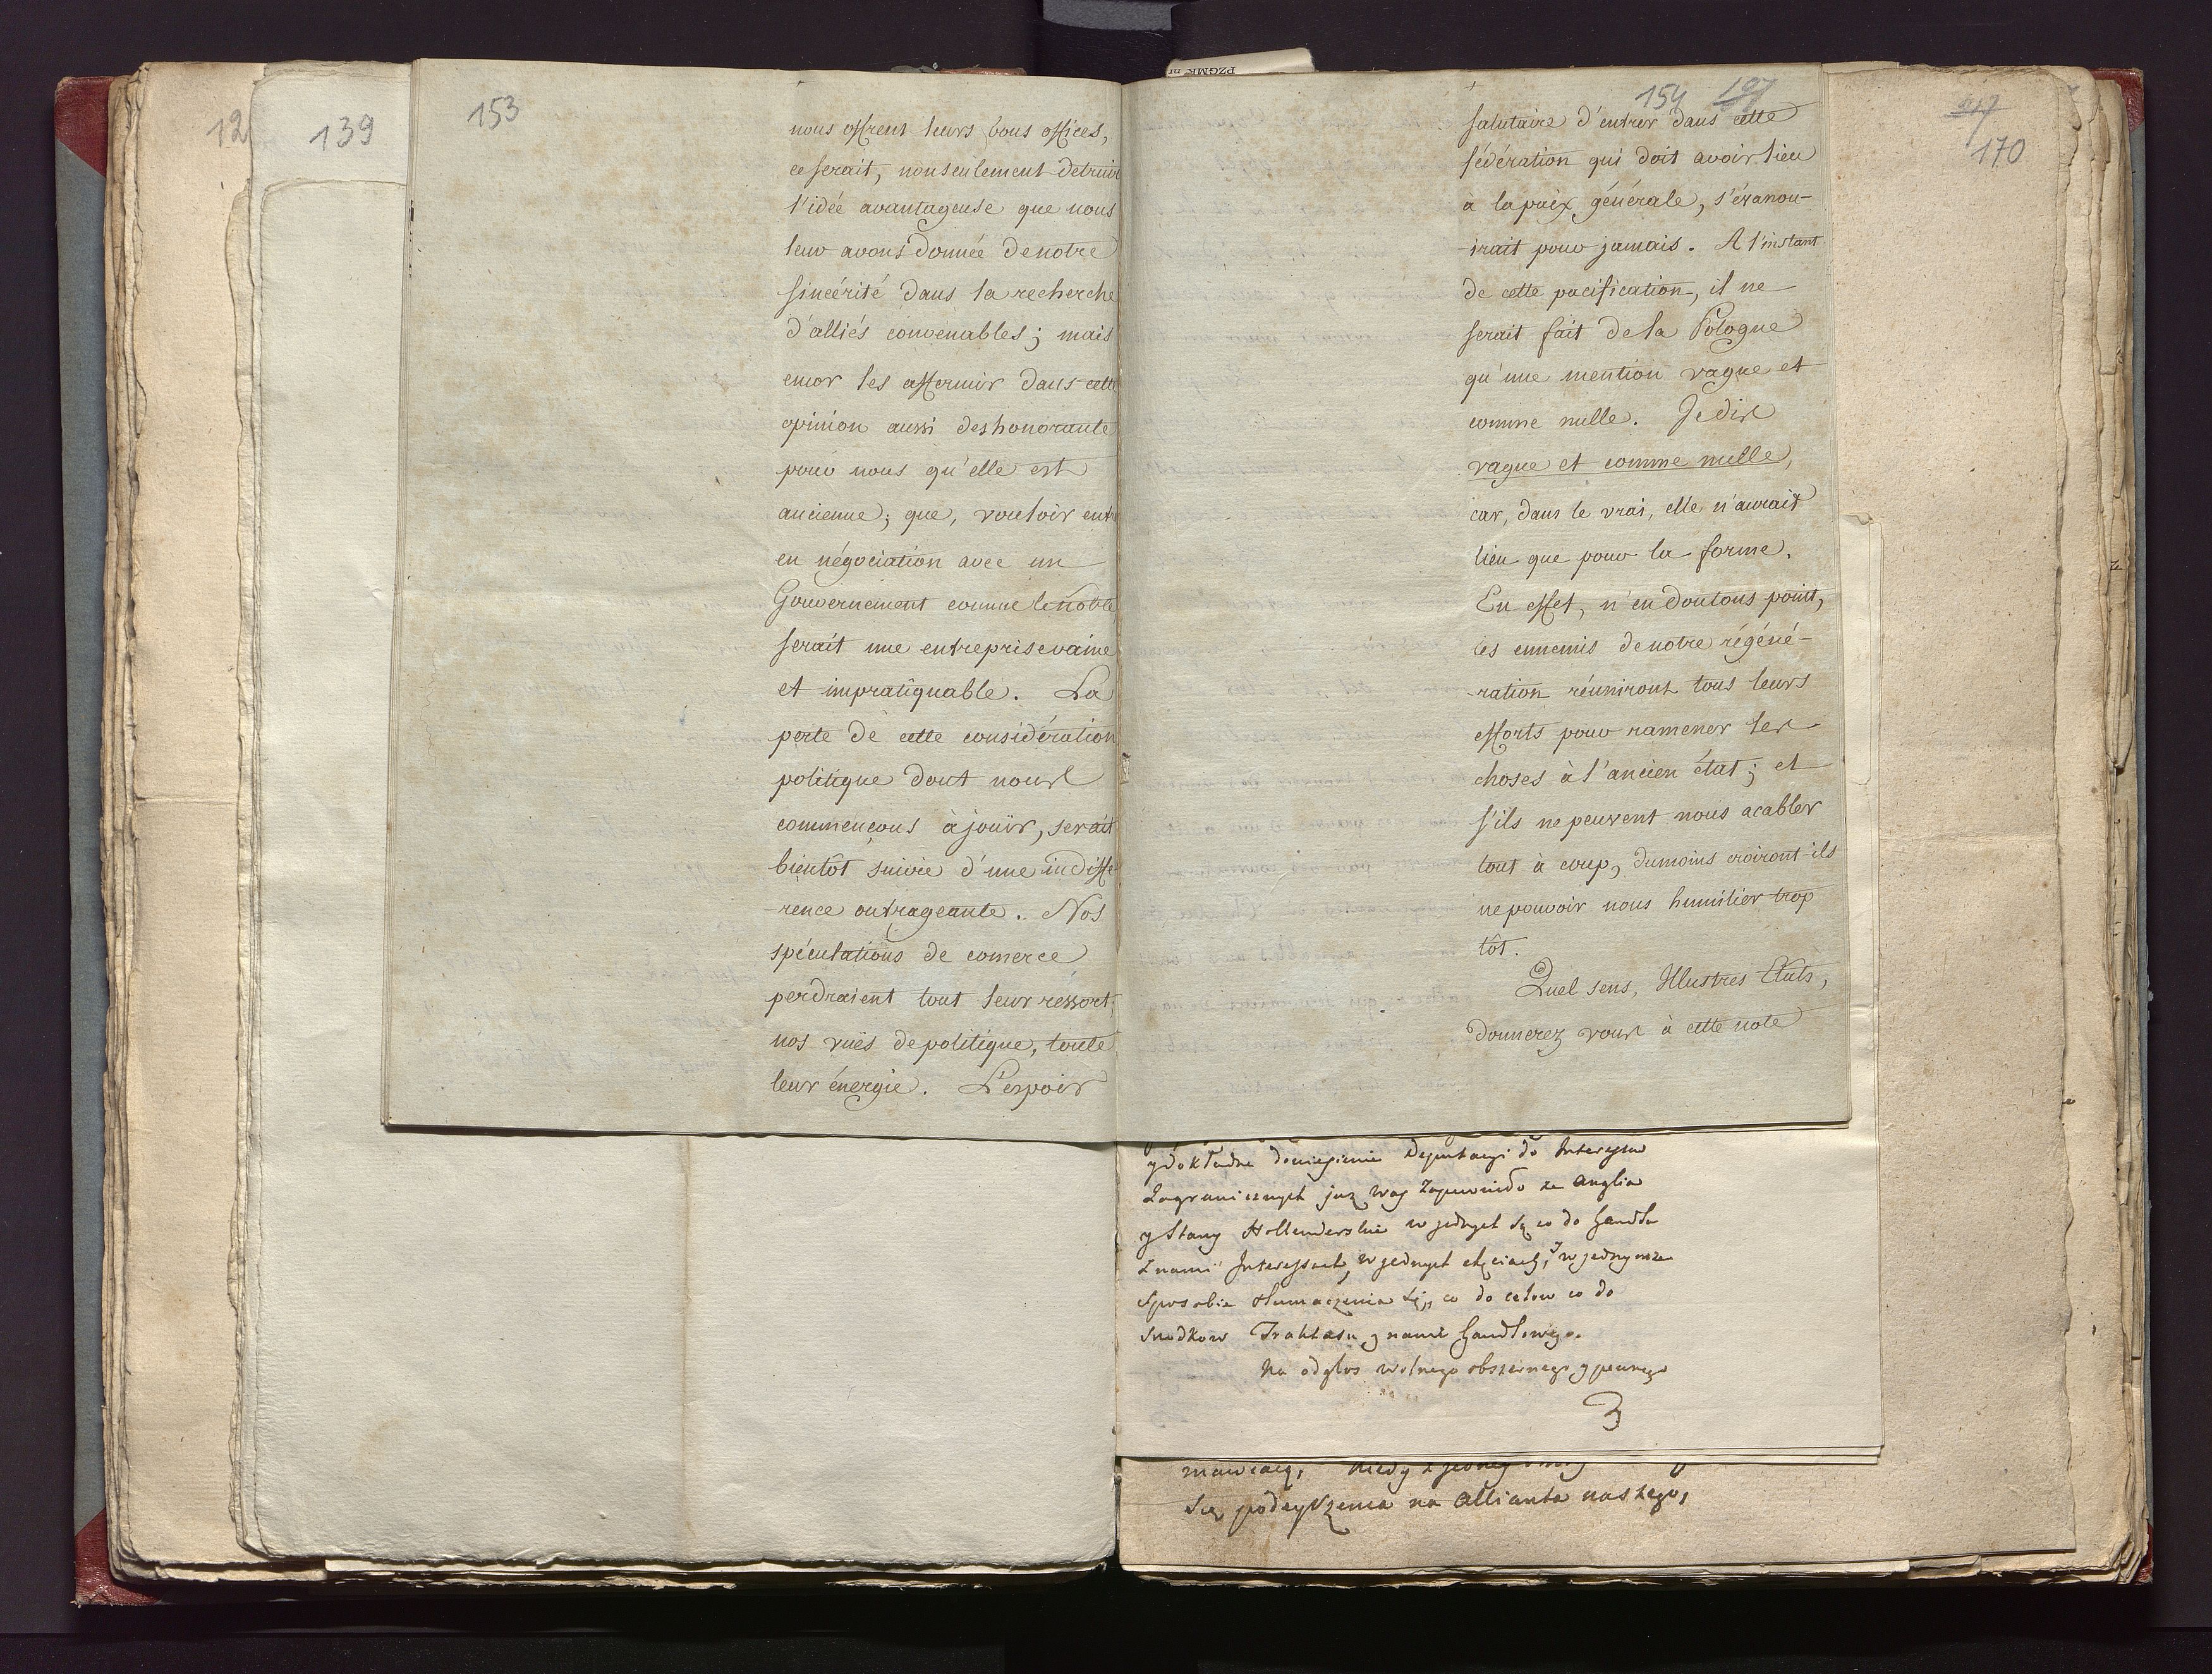 12
139
153
nous offrent leurs bons offices,
ce serait, nonseulement detruir
l'idée avantageuse que nous
leur avons donnée de notre
sincérité dans la recherche
d'alliés convenables; mais
encor les affermir dans cette
opinion aussi deshonorante
pour nous qu'elle est
ancienne; que, vouloir entr
en négociation avec un
Gouvernement comme le notre
serait une entreprise vaine
et impratiquable. La
perte de cette considération
politique dont nous
commençons à jouïr, serait
bientôt suivie d'une indiffe-
-rence outrageante. Nos
spéculations de comerce
perdraient tout leur ressort,
nos vuës de politique, toute
leur énergie. L'espoir
154
salutaire d'entrer dans cette
fédération qui doit avoir lieu
à la paix générale, s'évanou-
-irait pour jamais. A l'instant
de cette pacification, il ne
serait fait de la Pologne
qu'une mention vague et
comme nulle. Je dis
vague et comme nulle,
car, dans le vrai, elle n'aurait
lieu que pour la forme.
En effet, n'en doutons point,
les ennemis de notre régéné-
-ration réuniront tous leurs
efforts pour ramener les
choses à l'ancien état; et
s'ils ne peuvent nous acabler
tout à coup, dumoins croiront-ils
ne pouvoir nous humilier trop
tôt.
Quel sens, Illustres Etats,
donnerez vous à cette note
170
y dokładne doniesienie Deputacyi do Interesow
Zagranicznych już was zapewniło ze Anglia
y Stany Hollenderskie w jednych są co do handlu
z nami Interessach, w jednych chęciach, w jednymze
sposobie tłumaczenia się, co do celow co do
srodkow Traktatu z nami handlowego.
Na odgłos wolnego obszernego y pewnego
3
mawiaią, kiedy z jedney
się podeyrzenia na Allianta naszego,